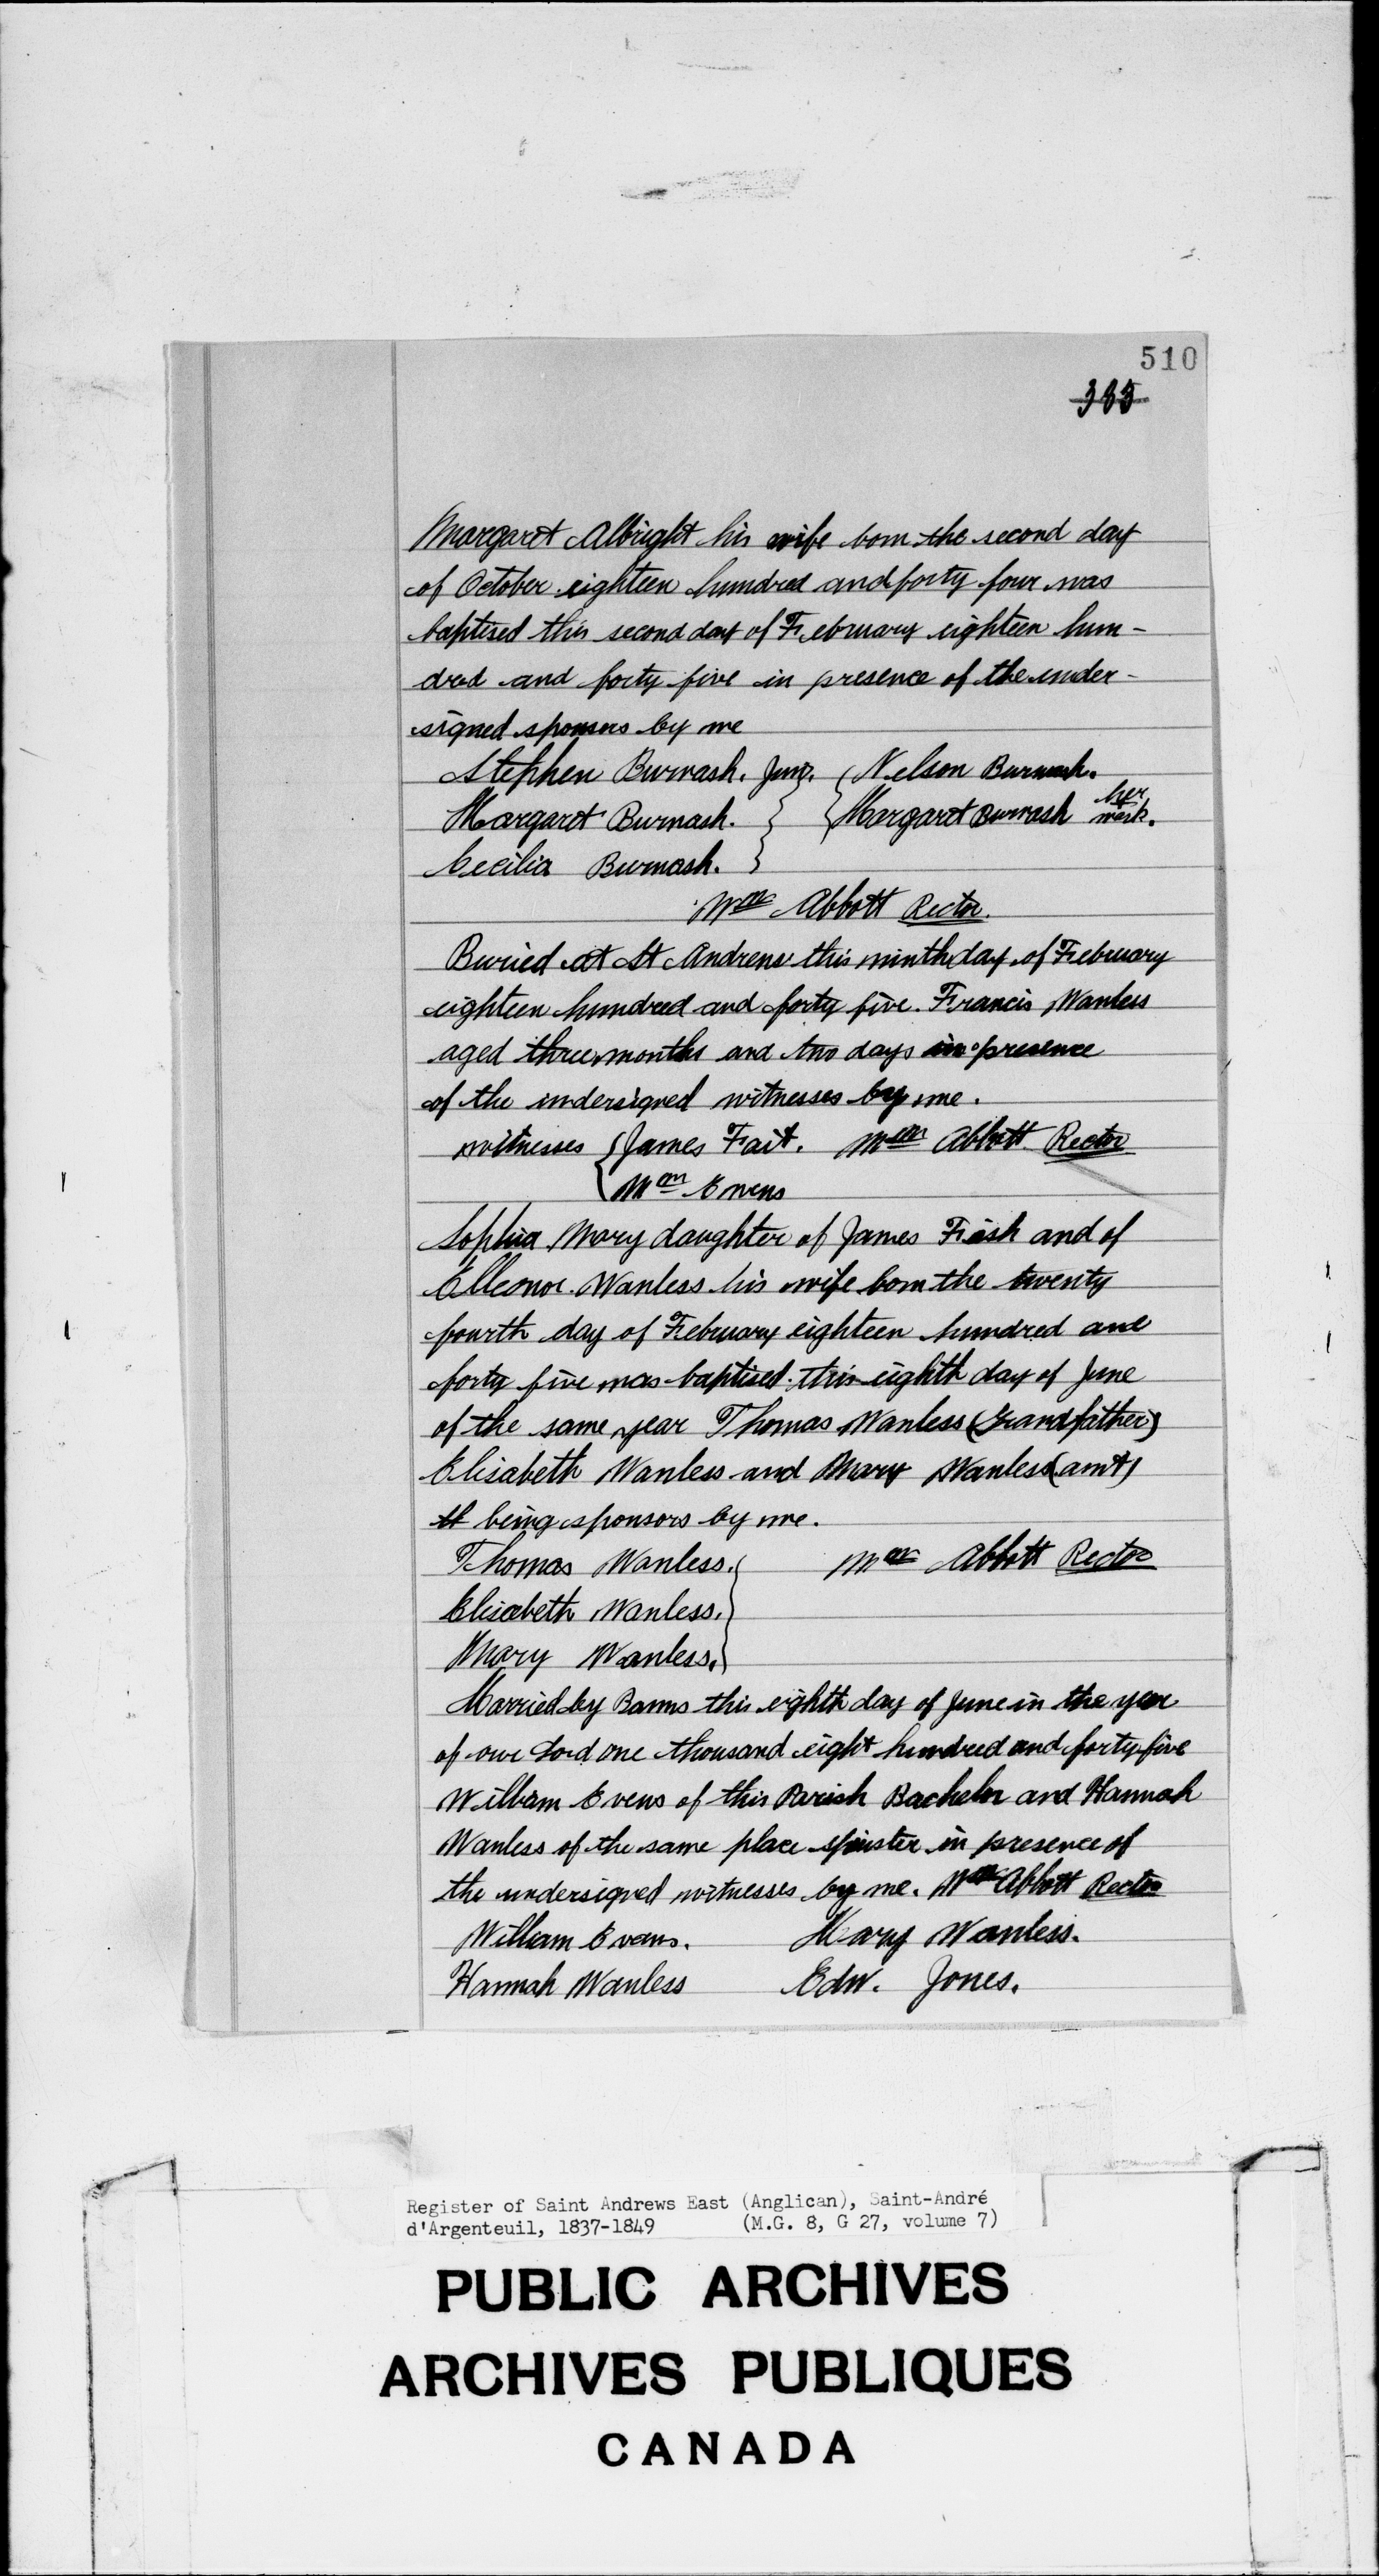 510
385
Margaret Albright his wife born the second day
of October eighteen hundred and forty four was
baptised this second day of February eighteen hun-
dred and forty five in presence of the under-
signed sponsors by me
Stephen Burwash. Junr. { Nelson Burwash.
Margaret Burwash. } { Margaret Burwash her + mark.
Cecilia Burwash. }
Wm Abbott Rector.
Buried at St Andrews this ninth day of February
eighteen hundred and forty five. Francis Wanless
aged three months and two days in presence
of the undersigned witnesses by me.
witnesses { James Fait. Wm Abbott Rector
{ Wm Evens
Sophia Mary daughter of James Fish and of
Elleonor Wanless his wife born the twenty
fourth day of February eighteen hundred and
forty five was baptised this eighth day of June
of the same year Thomas Wanless (Grandfather)
Elisabeth Wanless and Mary Wanless (aunt)
being sponsors by me.
Thomas Wanless. } Wm Abbott Rector
Elisabeth Wanless. }
Mary Wanless. }
Married by Banns this eighth day of June in the year
of our Lord one thousand eight hundred and forty five
William Evens of this Parish Bachelor and Hannah
Wanless of the same place spinster in presence of
the undersigned witnesses by me. Wm Abbott Rector
William Evans. Mary Wanless.
Hannah Wanless Edw. Jones.
Register of Saint Andrews East (Anglican), Saint-André
d'Argenteuil, 1837-1849 (M.G. 8, G 27, volume 7)
PUBLIC ARCHIVES
ARCHIVES PUBLIQUES
CANADA